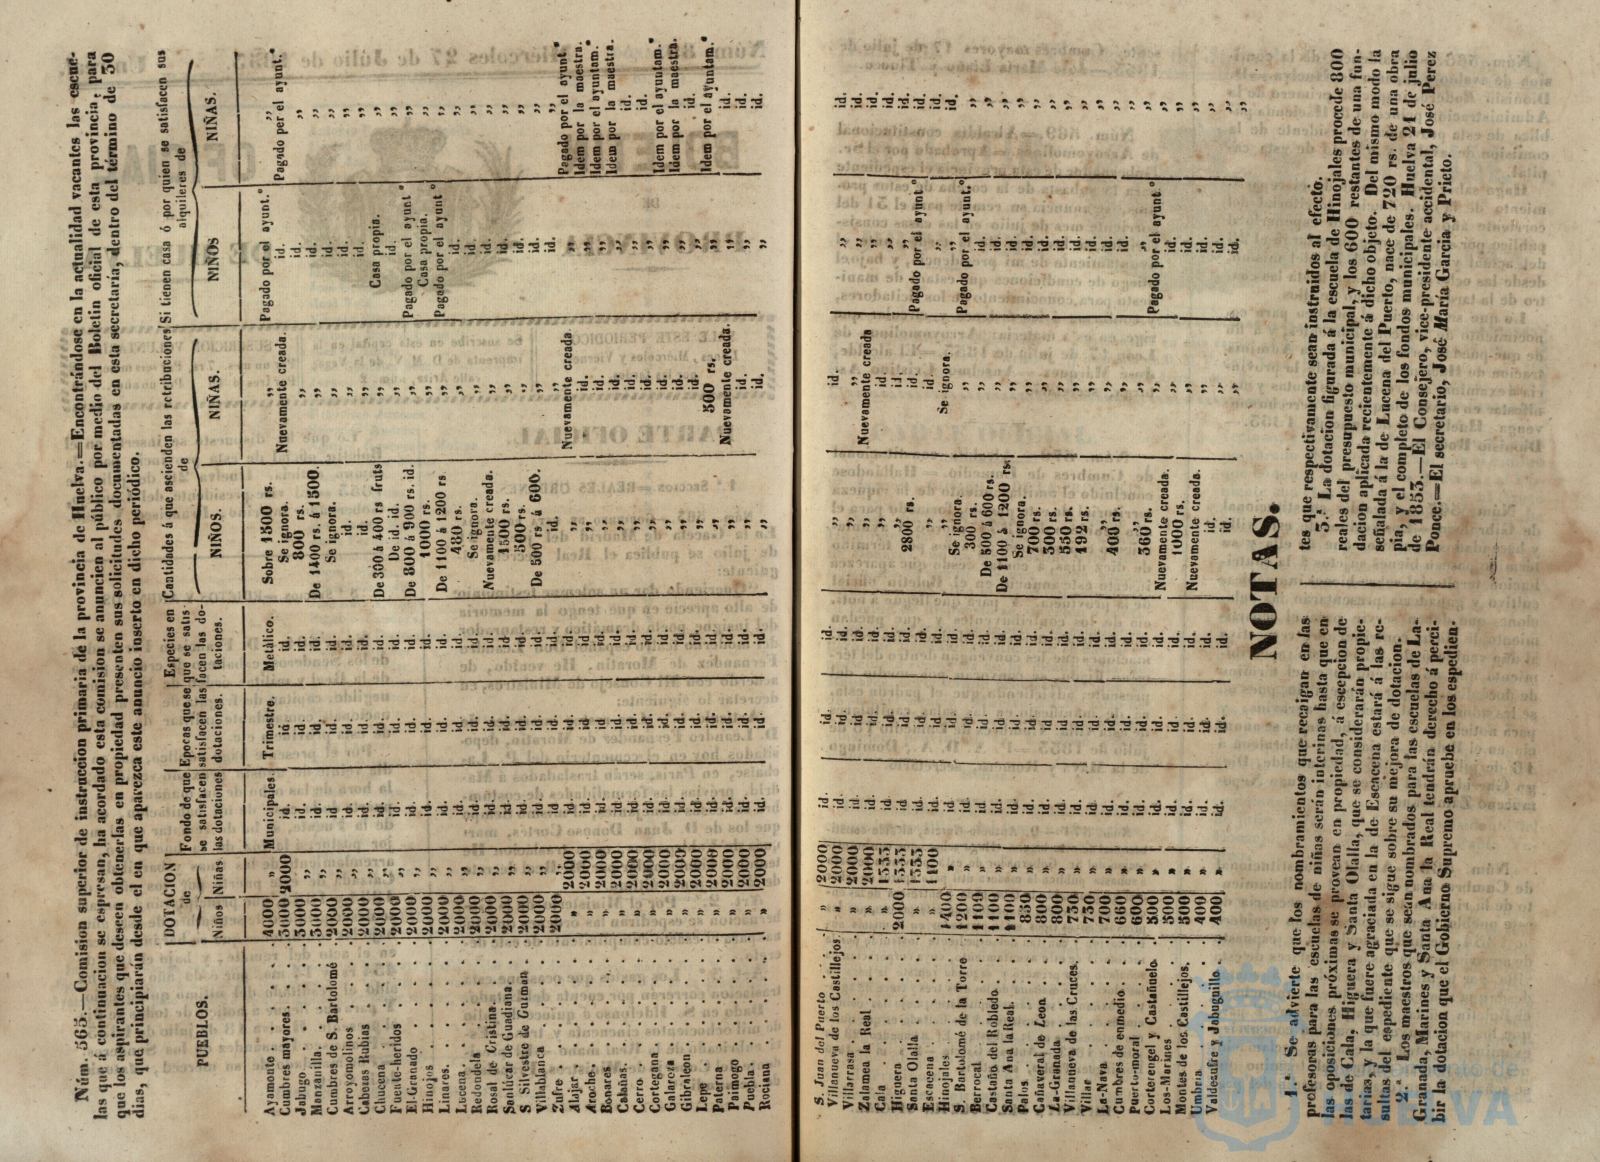 Núm. 565.—Comision superior de instruccion primaria de la provincia de Huelva.=Encontrándose en la actualidad vacantes las escue-
las que á continuacion se espresan, ha acordado esta comision se anuncien al público por medio del Boletin oficial de esta provincia, para
que los aspirantes que deseen obtenerlas en propiedad presenten sus solicitudes documentadas en esta secretaría, dentro del término de 30
dias, que principiarán desde el en que aparezca este anuncio inserto en dicho periódico.
PUEBLOS. DOTACION de Niños Niñas Fondo de que se satisfacen las dotaciones Epocas que se satisfacen las dotaciones. Especies en que se satisfacen las dotaciones. Cantidades á que ascienden las retribuciones de NIÑOS. NIÑAS. Si tienen casa ó por quien se satisfacen sus alquileres de NIÑOS NIÑAS.
Ayamonte 4000 » Municipales. Trimestre. Metálico. Sobre 1300 rs. ,, Pagado por el ayunt.º ,,
Cumbres mayores. 3000 2000 id. id. id. Se ignora. Nuevamente creada. id. Pagado por el ayunt.º
Jabugo 3000 ,, id. id. id. 800 rs. ,, id. ,,
Manzanilla. 3000 ,, id. id. id. De 1400 rs. á 1500. ,, id. ,,
Cumbres de S. Bartolomé 2000 ,, id. id. id. Se ignora. ,, id. ,,
Arroyomolinos 2000 ,, id. id. id. id. ,, id. ,,
Cabezas Rubias 2000 ,, id. id. id. id. ,, id. ,,
Chucena 2000 ,, id. id. id. De 300 á 400 rs fruts ,, Casa propia. ,,
Fuente-heridos 2000 ,, id. id. id. De id. id. ,, id. ,,
El Granado 2000 ,, id. id. id. De 800 á 900 rs. id. ,, Pagado por el ayunt.º ,,
Hinojos 2000 ,, id. id. id. 1000 rs. ,, Casa propia. ,,
Linares. 2000 ,, id. id. id. De 1100 á 1200 rs ,, Pagado por el ayunt.º ,,
Lucena. 2000 ,, id. id. id. 480 rs. ,, id. ,,
Redondela 2000 ,, id. id. id. Se ignora. ,, id. ,,
Rosal de Cristina. 2000 ,, id. id. id. Nuevamente creada. ,, id. ,,
Sanlúcar de Guadiana. 2000 ,, id. id. id. 1500 rs. ,, id. ,,
S Silvestre de Guzman 2000 ,, id. id. id. 500 rs. ,, id. ,,
Villablanca 2000 ,, id. id. id. De 500 rs. á 600. ,, id. ,,
Zufre 2000 ,, id. id. id. id. ,, id. ,,
Alajar » 2000 id. id. id. ,, Nuevamente creada ,, Pagado por el ayunt.º
Aroche. » 2000 id. id. id. ,, id. ,, Idem por la maestra.
Bonares » 2000 id. id. id. ,, id. ,, Idem por el ayuntam.º
Cabañas. » 2000 id. id. id. ,, id. ,, Idem por la maestra.
Cerro » 2000 id. id. id. ,, id. ,, id.
Cortegana » 2000 id. id. id. ,, id. ,, id.
Galaroza » 2000 id. id. id. ,, id. ,, Idem por el ayuntam.º
Gibraleon » 2000 id. id. id. ,, id. ,, Idem por la maestra.
Lepe » 2000 id. id. id. ,, 500 rs. ,, id.
Paterna » 2000 id. id. id. ,, Nuevamente creada. ,, Idem por el ayuntam.º
Paimogo » 2000 id. id. id. ,, id. ,, id.
Puebla » 2000 id. id. id. ,, id. ,, id.
Rociana » 2000 id. id. id. ,, id. ,, id.
S. Juan del Puerto » 2000 id. id. id. ,, id. ,, id.
Villanueva de los Castillejos. » 2000 id. id. id. ,, ,, ,, id.
Villarrasa » 2000 id. id. id. ,, Nuevamente creada ,, id.
Zalamea la Real » 2000 id. id. id. ,, id. ,, id.
Cala » 1333 id. id. id. ,, id. ,, id.
Higuera 2000 1333 id. id. id. 2800 rs. id. Pagado por el ayunt.º id.
Santa Olalla » 1333 id. id. id. ,, id. ,, id.
Escacena » 1100 id. id. id. ,, id. ,, id.
Hinojales 1400 » id. id. id. Se ignora Se ignora. Pagado por el ayunt.º ,,
S. Bartolomé de la Torre 1200 » id. id. id. 300 rs. ,, id. ,,
Berrocal 1100 » id. id. id. De 500 á 600 rs. ,, id. ,,
Castaño del Robledo. 1100 » id. id. id. De 1100 á 1200 rs. ,, id. ,,
Santa Ana la Real. 1100 » id. id. id. Se ignora ,, id. ,,
Palos 850 » id. id. id. 700 rs. ,, id. ,,
Cañaveral de Leon. 800 » id. id. id. 300 rs. ,, id. ,,
La-Granada. 800 » id. id. id. 550 rs. ,, id. ,,
Villanueva de las Cruces. 730 » id. id. id. 192 rs. ,, id. ,,
Villar 730 » id. id. id. ,, ,, id. ,,
La-Nava 700 » id. id. id. 400 rs. ,, id. ,,
Cumbres de enmedio. 660 » id. id. id. ,, ,, id. ,,
Puerto-moral 600 » id. id. id. 360 rs. ,, ,, ,,
Cortelangel y Castañuelo. 500 » id. id. id. Nuevamente creada ,, Pagado por el ayunt.º ,,
Los-Marines 500 » id. id. id. 1000 rs. ,, id. ,,
Montes de los Castillejos. 500 » id. id. id. Nuevamente creada. ,, id. ,,
Umbria 400 » id. id. id. id. ,, id. ,,
Valdesufre y Jabuguillo 400 » id. id. id. id. ,, id. ,,
NOTAS.
1.ª Se advierte que los nombramientos que recaigan en las
profesoras para las escuelas de niñas serán interinas hasta que en
las oposiciones próximas se provean en propiedad, á escepcion de
las de Cala, Higuera y Santa Olalla, que se considerarán propie-
tarias, y la que fuere agraciada en la de Escacena estará á las re-
sultas del espediente que se sigue sobre su mejora de dotacion.
2.ª Los maestros que sean nombrados para las escuelas de La-
Granada, Marines y Santa Ana la Real tendrán derecho á perci-
bir la dotacion que el Gobierno Supremo apruebe en los espedien-
tes que respectivamente sean instruidos al efecto.
3.ª La dotacion figurada á la escuela de Hinojales procede 800
reales del presupuesto municipal, y los 600 restantes de una fun-
dacion aplicada recientemente á dicho objeto. Del mismo modo la
señalada á la de Lucena del Puerto, nace de 720 rs. de una obra
pia, y el completo de los fondos municipales. Huelva 21 de julio
de 1853.—El Consejero, vice-presidente accidental, José Perez
Ponce.=El secretario, José María García y Prieto.
HUELVA